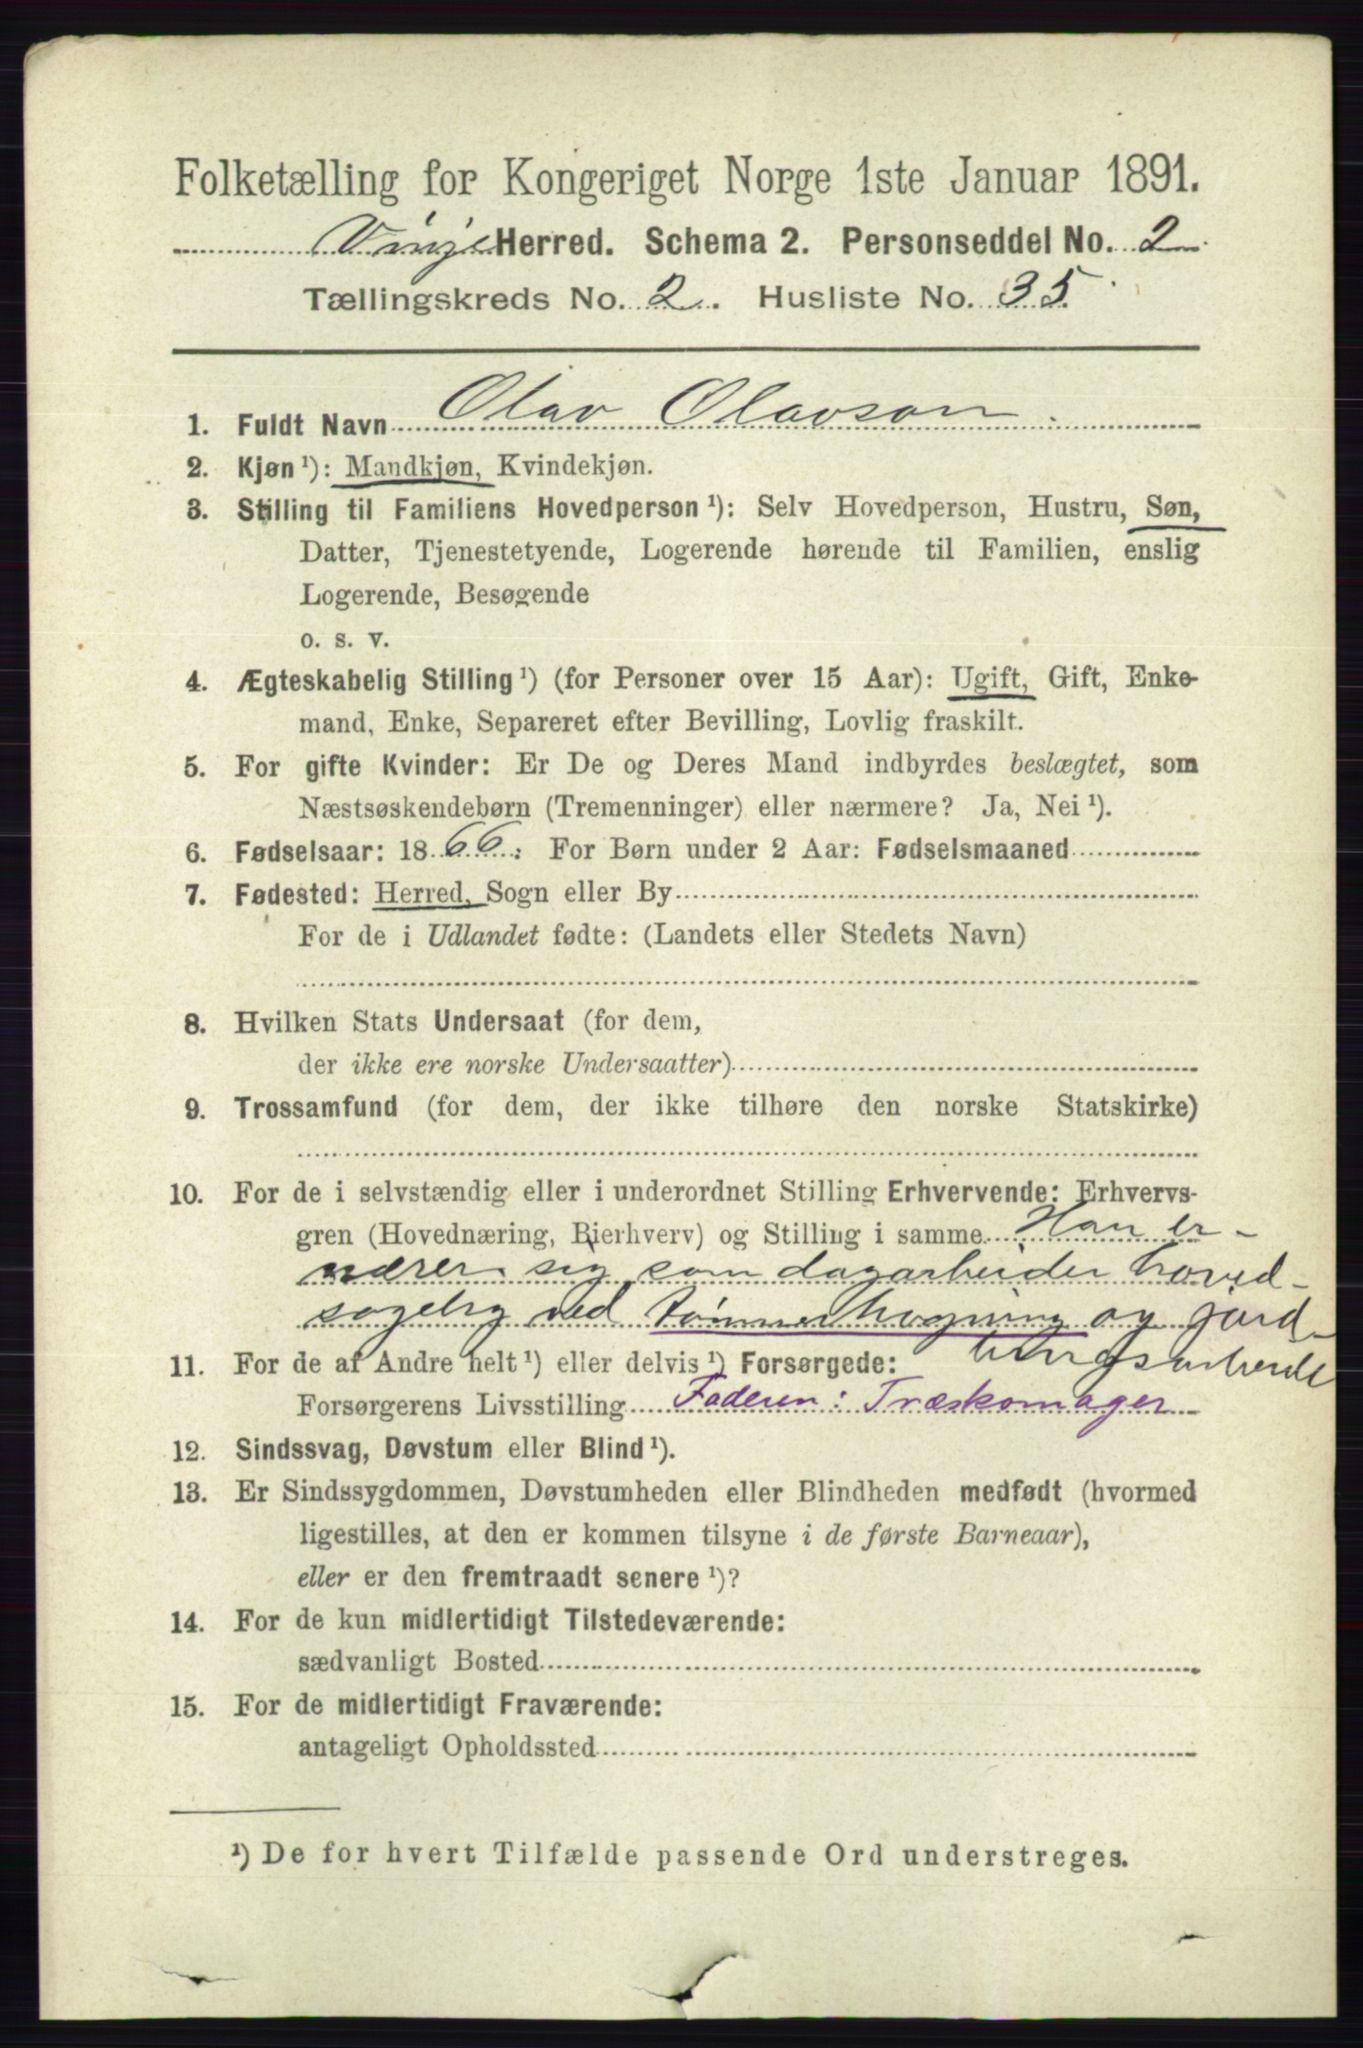 Folketælling for Kongeriget Norge 1ste Januar 1891.
Vinje Herred. Schema 2. Personseddel No. 2
Tællingskreds No. 2. Husliste No. 35
1. Fuldt Navn Olav Olavson
2. Kjøn ¹): Mandkjøn, Kvindekjøn.
3. Stilling til Familiens Hovedperson ¹): Selv Hovedperson, Hustru, Søn,
Datter, Tjenestetyende, Logerende hørende til Familien, enslig
Logerende, Besøgende
o. s. v.
4. Ægteskabelig Stilling ¹) (for Personer over 15 Aar): Ugift, Gift, Enke-
mand, Enke, Separeret efter Bevilling, Lovlig fraskilt.
5. For gifte Kvinder: Er De og Deres Mand indbyrdes beslægtet, som
Næstsøskendebørn (Tremenninger) eller nærmere? Ja, Nei ¹).
6. Fødselsaar: 1866. For Børn under 2 Aar: Fødselsmaaned
7. Fødested: Herred, Sogn eller By
For de i Udlandet fødte: (Landets eller Stedets Navn)
8. Hvilken Stats Undersaat (for dem,
der ikke ere norske Undersaatter)
9. Trossamfund (for dem, der ikke tilhøre den norske Statskirke)
10. For de i selvstændig eller i underordnet Stilling Erhvervende: Erhvervs-
gren (Hovednæring, Bierhverv) og Stilling i samme Han er-
nærer sig som dagarbeider hoved-
sagelig ved tømmerhogning og jord-
brugsarbeide
11. For de af Andre helt ¹) eller delvis ¹) Forsørgede:
Forsørgerens Livsstilling Faderen: Træskomager
12. Sindssvag, Døvstum eller Blind ¹).
13. Er Sindssygdommen, Døvstumheden eller Blindheden medfødt (hvormed
ligestilles, at den er kommen tilsyne i de første Barneaar),
eller er den fremtraadt senere ¹)?
14. For de kun midlertidigt Tilstedeværende:
sædvanligt Bosted
15. For de midlertidigt Fraværende:
antageligt Opholdssted
¹) De for hvert Tilfælde passende Ord understreges.